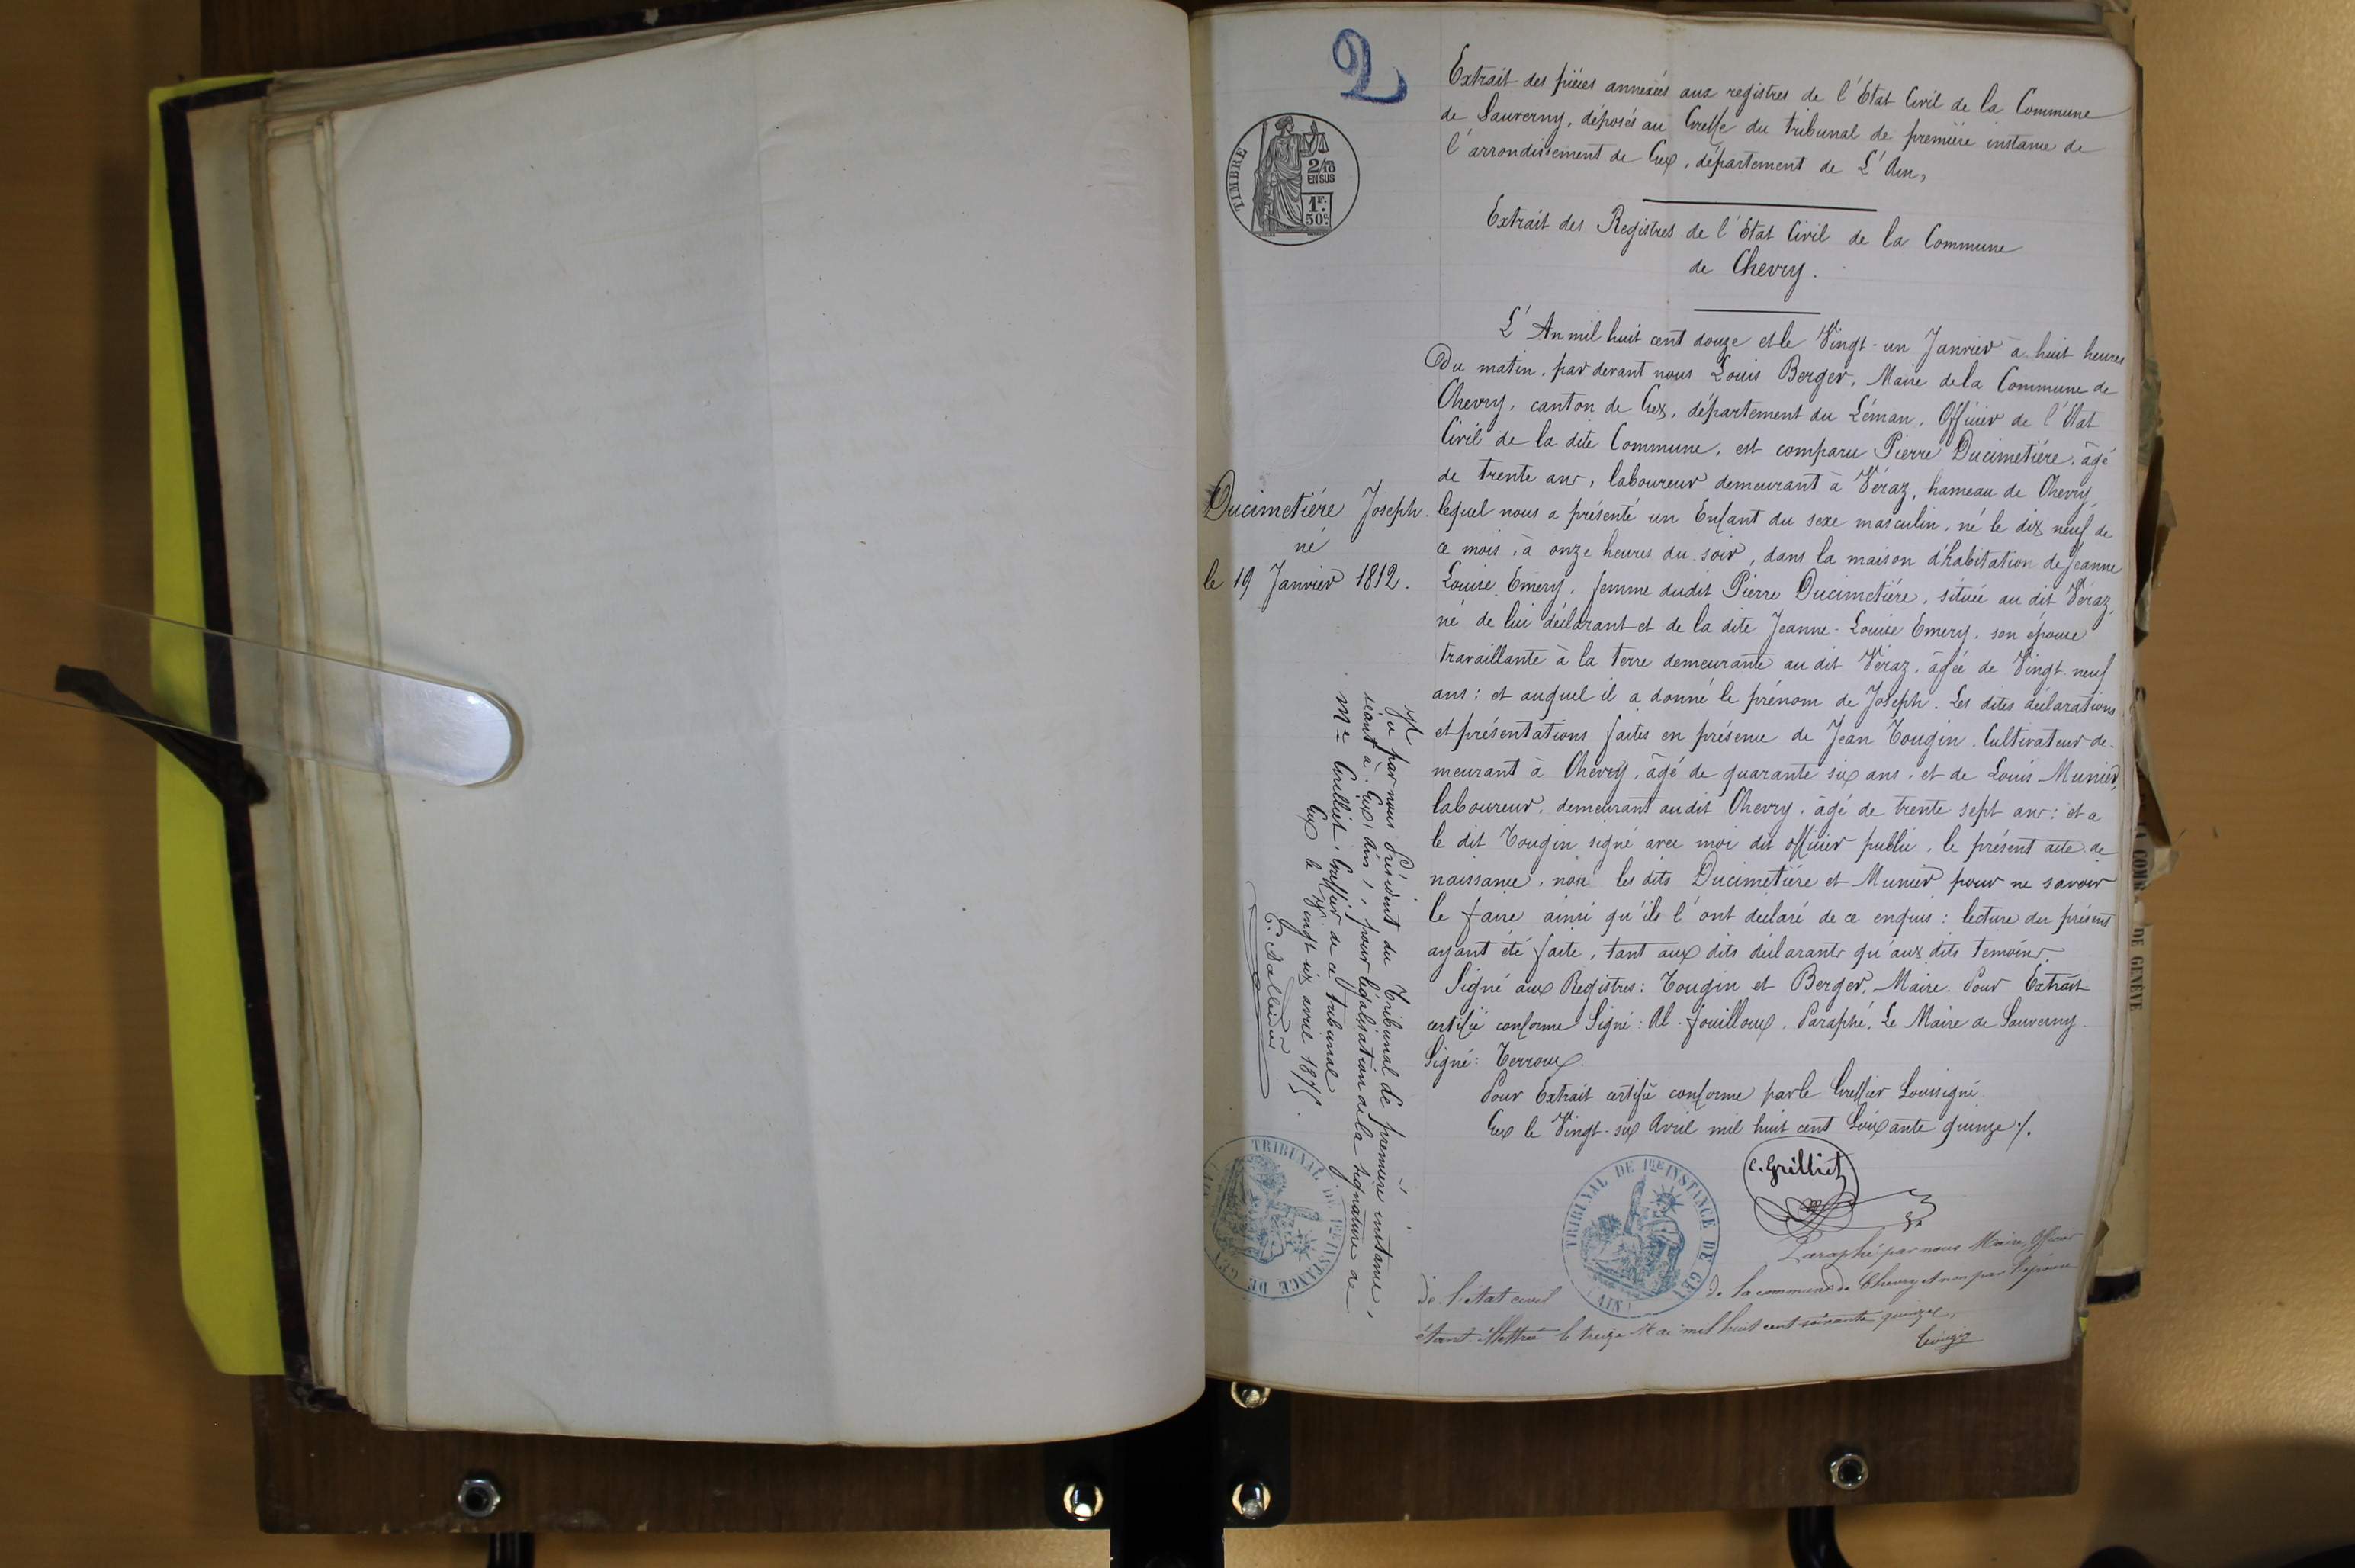 2
TIMBRE
2/10
EN SUS
1F.
50c.
Extrait des pièces annexées aux registres de l'Etat Civil de la Commune
de Sauverny, déposés au Greffe du tribunal de première instance de
l'arrondissement de Gex, département de L'Ain,
Extrait des Registres de l'Etat Civil de la Commune
de Chevry.
L'An mil huit cent douze et le Vingt-un Janvier à huit heures
Du matin, par devant nous Louis Berger, Maire de la Commune de
Chevry, canton de Gex, département du Léman, Officier de l'Etat
Civil de la dite Commune, est comparu Pierre Ducimetiére, âgé
de trente ans, laboureur demeurant à Véraz, hameau de Chevry,
lequel nous a présenté un Enfant du sexe masculin, né le dix neuf de
ce mois, à onze heures du soir, dans la maison d'habitation de Jeanne
Louise Emery, femme dudit Pierre Ducimetiére, située au dit Véraz,
né de lui déclarant et de la dite Jeanne-Louise Emery, son épouse
travaillante à la terre demeurante au dit Véraz, âgée de Vingt-neuf
ans: et auquel il a donné le prénom de Joseph. Les dites déclarations
et présentations faites en présence de Jean Tougin, Cultivateur de-
meurant à Chevry, âgé de quarante six ans, et de Louis Munier,
laboureur, demeurant audit Chevry, âgé de trente sept ans: et a
le dit Tougin signé avec moi dit officier public, le présent acte de
naissance, non les dits Ducimetiére et Munier pour ne savoir
le faire ainsi qu'ils l'ont déclaré de ce enquis: lecture du présent
ayant été faite, tant aux dits déclarants qu'aux dits témoins.
Signé aux Registres: Tougin et Berger, Maire. Pour Extrait
certifié conforme Signé: Al. Fouilloux. Paraphé, Le Maire de Sauverny
Signé: Terroux
Pour Extrait certifié conforme par le Greffier Soussigné
Gex le Vingt-six Avril mil huit cent Soixante quinze ./.
C. Grilliet
TRIBUNAL DE 1RE INSTANCE DE GEX
(AIN)
Paraphé par nous Maire, Officier
de l'état civil de la commune de Chevry et non par l'épouse
étant illettrée le treize Mai mil huit cent soixante quinze,
Ducimetiére Joseph
né
le 19 Janvier 1812.
Vu par nous Président du Tribunal de première instance,
séant à Gex, Ain, pour légalisation de la signature de
Me Grilliet, Greffier de ce tribunal
Gex le Vingt six avril 1875.
TRIBUNAL DE 1RE INSTANCE DE GEX
DE GENÈVE